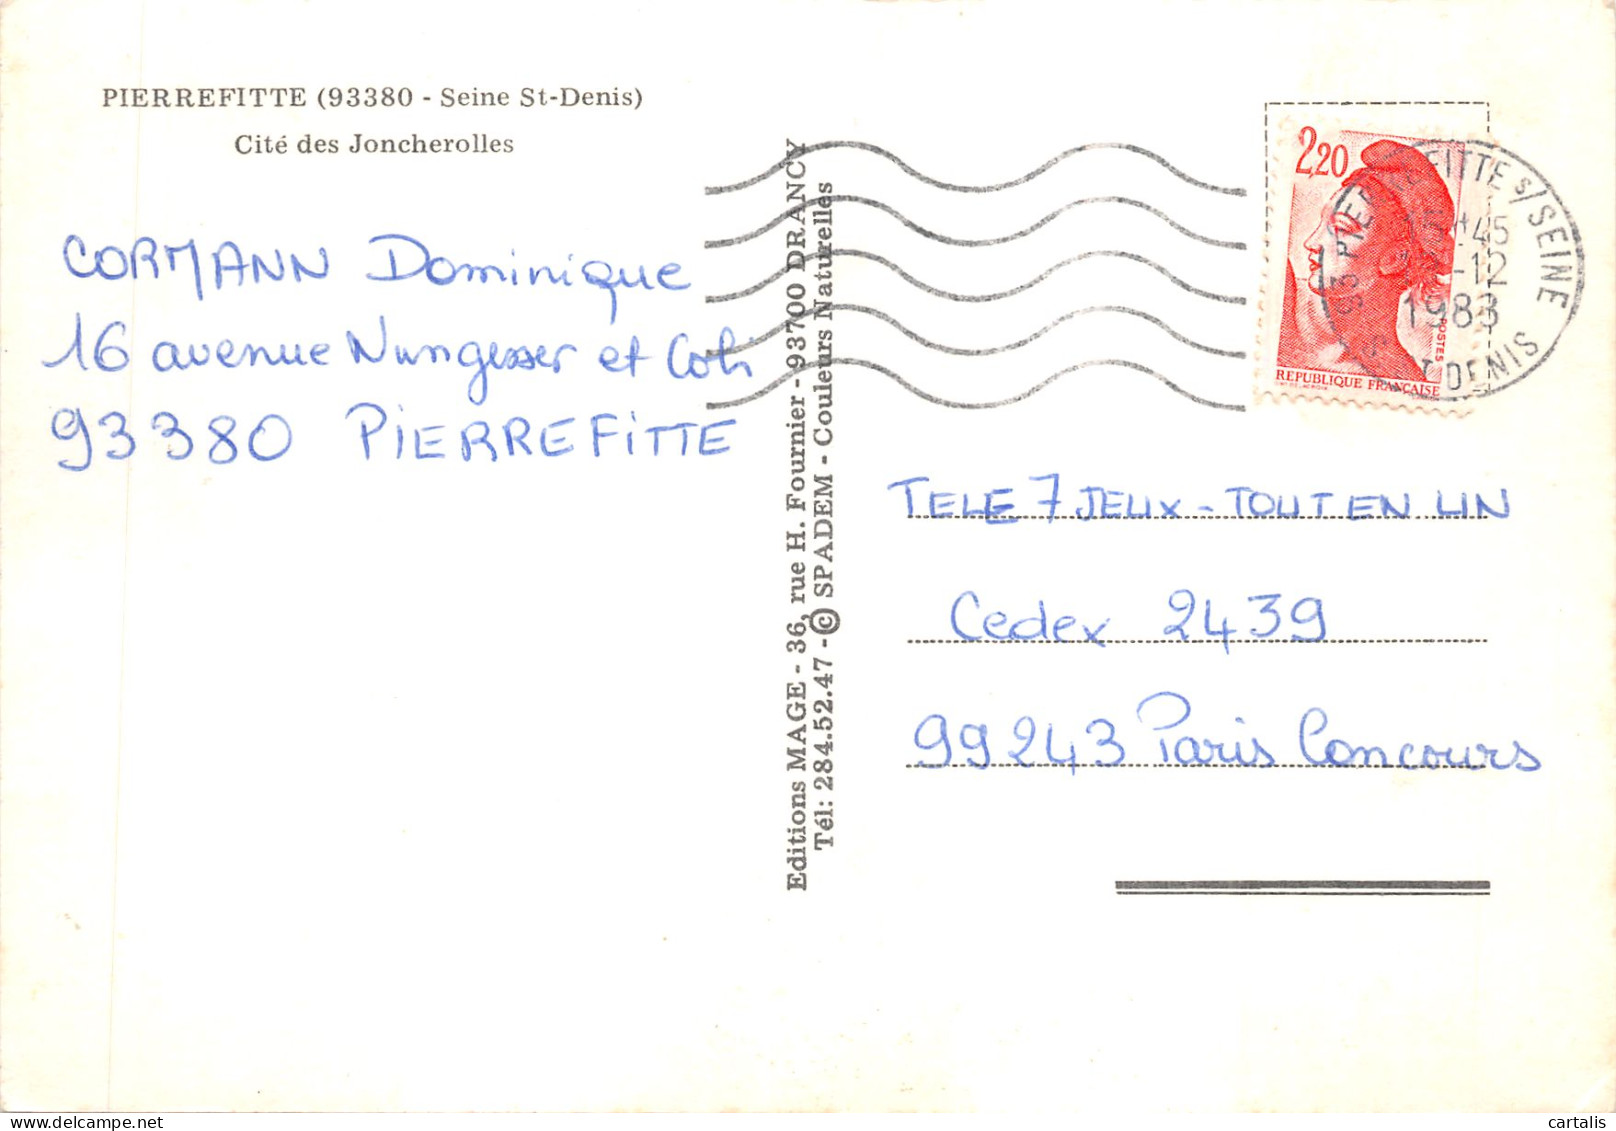 PIERREFITTE (93380 - Seine St-Denis)
Cité des Joncherolles
CORMANN Dominique
16 avenue Nungesser et Coli
93380 PIERREFITTE
Editions MAGE - 36, rue H. Fournier - 93700 DRANCY
Tél: 284.52.47 - © SPADEM - Couleurs Naturelles
2,20
POSTES
REPUBLIQUE FRANÇAISE
93 PIERREFITTE S/SEINE
45
-12
1983
ST DENIS
TELE 7 JEUX - TOUT EN UN
Cedex 2439
99243 Paris Concours
cartalis